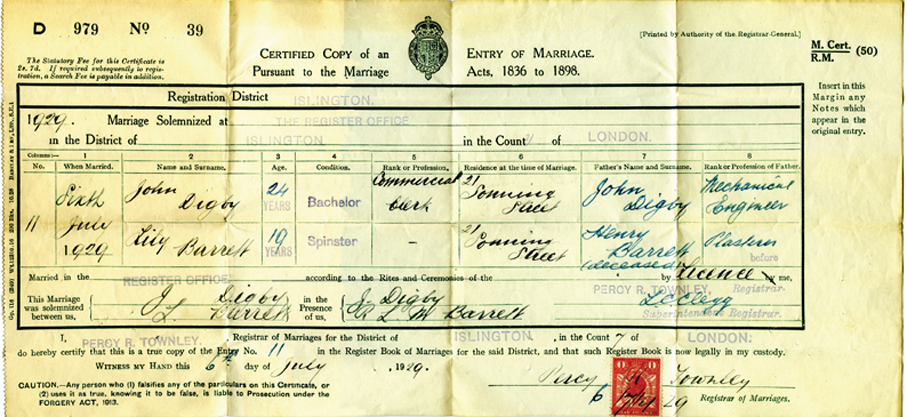 D 979 No 39
[Printed by Authority of the Registrar-General.]
The Statutory Fee for this Certificate is
2s. 7d. If required subsequently to regis-
tration, a Search Fee is payable in addition.
CERTIFIED COPY OF AN ENTRY OF MARRIAGE.
PURSUANT TO THE MARRIAGE ACTS, 1836 TO 1898.
M. Cert. (50)
R.M.
Insert in this
Margin any
Notes which
appear in the
original entry.
Registration District ISLINGTON.
1929. Marriage Solemnized at THE REGISTER OFFICE
in the District of ISLINGTON in the County of LONDON.
Columns:— 1 2 3 4 5 6 7 8
No. When Married. Name and Surname. Age. Condition. Rank or Profession. Residence at the time of Marriage. Father's Name and Surname. Rank or Profession of Father.
11 Sixth July 1929
John Digby 24 YEARS Bachelor Commercial Clerk 21 Sonning Street John Digby Mechanical Engineer
Lily Barrett 19 YEARS Spinster — 21 Sonning Street Henry Barrett (deceased) Plasterer
Married in the REGISTER OFFICE according to the Rites and Ceremonies of the by Licence before by me,
This Marriage was solemnized between us, J. Digby L. Barrett in the Presence of us, J. Digby L M Barrett
PERCY R. TOWNLEY, Registrar.
L C Clegg
Superintendent Registrar
I, PERCY R. TOWNLEY, Registrar of Marriages for the District of ISLINGTON, in the County of LONDON.
do hereby certify that this is a true copy of the Entry No. 11 in the Register Book of Marriages for the said District, and that such Register Book is now legally in my custody.
WITNESS MY HAND this 6th day of July, 1929.
CAUTION.—Any person who (1) falsifies any of the particulars on this Certificate, or
(2) uses it as true, knowing it to be false, is liable to Prosecution under the
FORGERY ACT, 1913.
Percy R Townley
Registrar of Marriages.